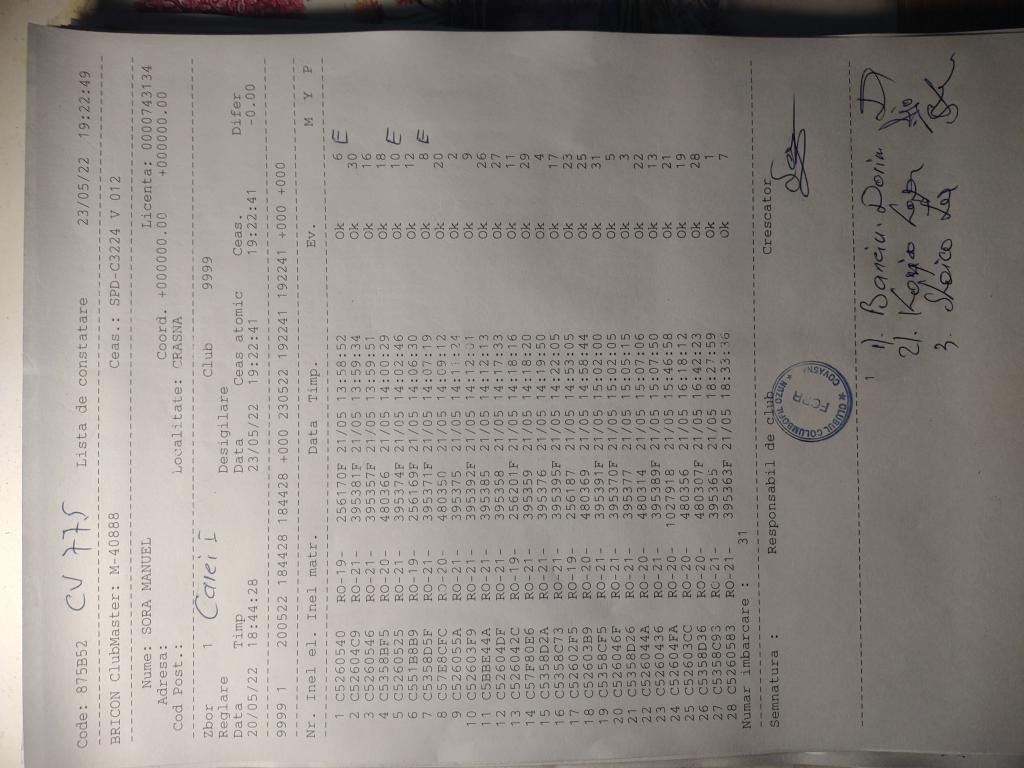 Code: 875B52 CV 775 Lista de constatare 23/05/22 19:22:49
BRICON ClubMaster: M-40888 Ceas.: SPD-C3224 V 012
Nume: SORA MANUEL Licenta: 0000743134
Adresa: Coord. +000000.00 +000000.00
Cod Post.: Localitate: CRASNA
Zbor 1 Carei I Club 9999
Reglare Desigilare
Data Timp Data Ceas atomic Ceas. Difer
20/05/22 18:44:28 23/05/22 19:22:41 19:22:41 -0.00
9999 1 200522 184428 184428 +000 230522 192241 192241 +000 +000
Nr. Inel el. Inel matr. Data Timp. Ev. M Y P
1 C5260540 RO-19- 256170F 21/05 13:58:52 Ok 6 E
2 C52604C9 RO-21- 395381F 21/05 13:59:34 Ok 30
3 C5260546 RO-21- 395357F 21/05 13:59:51 Ok 16
4 C5358BF5 RO-20- 480366 21/05 14:00:29 Ok 18
5 C5260525 RO-21- 395374F 21/05 14:02:46 Ok 10 E
6 C551B8B9 RO-19- 256169F 21/05 14:06:30 Ok 12
7 C5358D5F RO-21- 395371F 21/05 14:07:19 Ok 8 E
8 C57E8CFC RO-20- 480350 21/05 14:09:12 Ok 20
9 C526055A RO-21- 395375 21/05 14:11:24 Ok 2
10 C52603F9 RO-21- 395392F 21/05 14:12:01 Ok 9
11 C5BBE44A RO-21- 395385 21/05 14:12:13 Ok 26
12 C52604DF RO-21- 395358 21/05 14:17:33 Ok 27
13 C526042C RO-19- 256201F 21/05 14:18:16 Ok 11
14 C57F80E6 RO-21- 395359 21/05 14:18:20 Ok 29
15 C5358D2A RO-21- 395376 21/05 14:19:50 Ok 4
16 C5358C73 RO-21- 395395F 21/05 14:22:05 Ok 17
17 C52602F5 RO-19- 256187 21/05 14:53:05 Ok 23
18 C52603B9 RO-20- 480369 21/05 14:58:44 Ok 25
19 C5358CF5 RO-21- 395391F 21/05 15:02:00 Ok 31
20 C526046F RO-21- 395370F 21/05 15:02:05 Ok 5
21 C5358D26 RO-21- 395377 21/05 15:05:15 Ok 3
22 C526044A RO-20- 480314 21/05 15:07:06 Ok 22
23 C5260436 RO-21- 395389F 21/05 15:07:50 Ok 13
24 C52604FA RO-20- 1027918 21/05 15:46:58 Ok 21
25 C52603CC RO-20- 480356 21/05 16:18:12 Ok 19
26 C5358D36 RO-20- 480307F 21/05 16:42:23 Ok 28
27 C5358C93 RO-21- 395365 21/05 18:27:59 Ok 1
28 C5260583 RO-21- 395363F 21/05 18:33:36 Ok 7
Numar imbarcare : 31
Semnatura : Responsabil de club Crescator
CLUBUL COLUMBOFIL
FCPR
COVASNA
1
1). Banciu Dorin
2).
3. Stoica